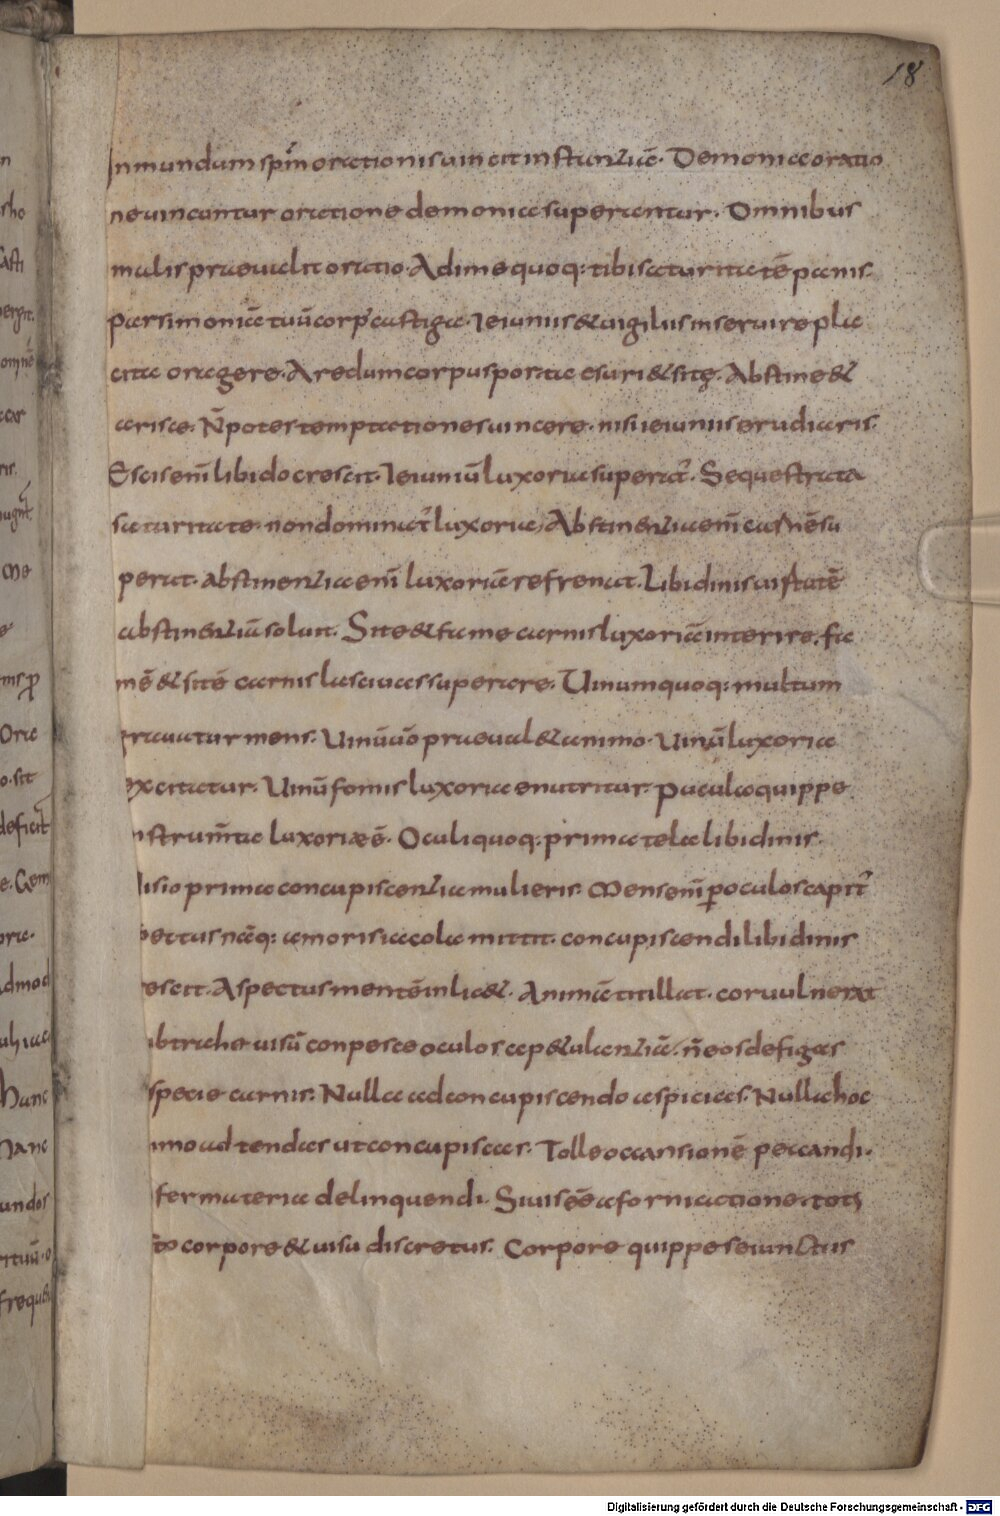 18
Inmundum spm̄ orationis uincit instantiā. Demoniae oratio
ne uincuntur oratione demonia superantur. Omnibus
malis praeualit oratio. Adime quoq: tibi saturitatē panis.
Parsimoniā tuū corp' castiga. Ieiuniis & uigiliis inseruire pla
cita oragere. Aredum corpus porta esuri & site. Abstine &
arisce. N̄ potes temptationes uincere. nisi ieiuniis erudiaris.
Escis enī libido crescit. Ieiuniū luxoria superat'. Sequestrata
saturitate. non dominat' luxoria, Abstinentia enī carnē su
perat. abstinentia enī luxoriā refrenat. Libidinis uistutē
abstinentiā soluit. Site & fame carnis luxoriā interire. fa
mē & sitē carnis lasciuias superare. Uinum quoq: multum
grauatur mens. Uinū uīo praeual & animo. Uinū luxoria
excitatur. Uinū fomis luxoriae nutritur. Pucula quippe
nstrum̄ta luxoriae ē. Oculi quoq: prima tela libidinis.
Uisio prima concupiscentia mulieris. Mens enī p oculos capit'
pectus nāq: amoris iacola mittit. concupiscendi libidinis
escit. Aspectus mentē inlic&. Animā titillat. cor uulnerat
ubtrahe uisū conpesce oculos a p&ulantiā. n̄ eos defigas
specie carnis. Nulla ad concupiscendo aspicias. Nulla hoc
imo ad tendas ut concupiscas. Tolle occansionē peccandi.
fer materia delinquendi. Si uis ēē a fornicatione. totꝫ
sto corpore & uisu discretus. Corpore quippe seiunctus
Digitalisierung gefördert durch die Deutsche Forschungsgemeinschaft - DFG